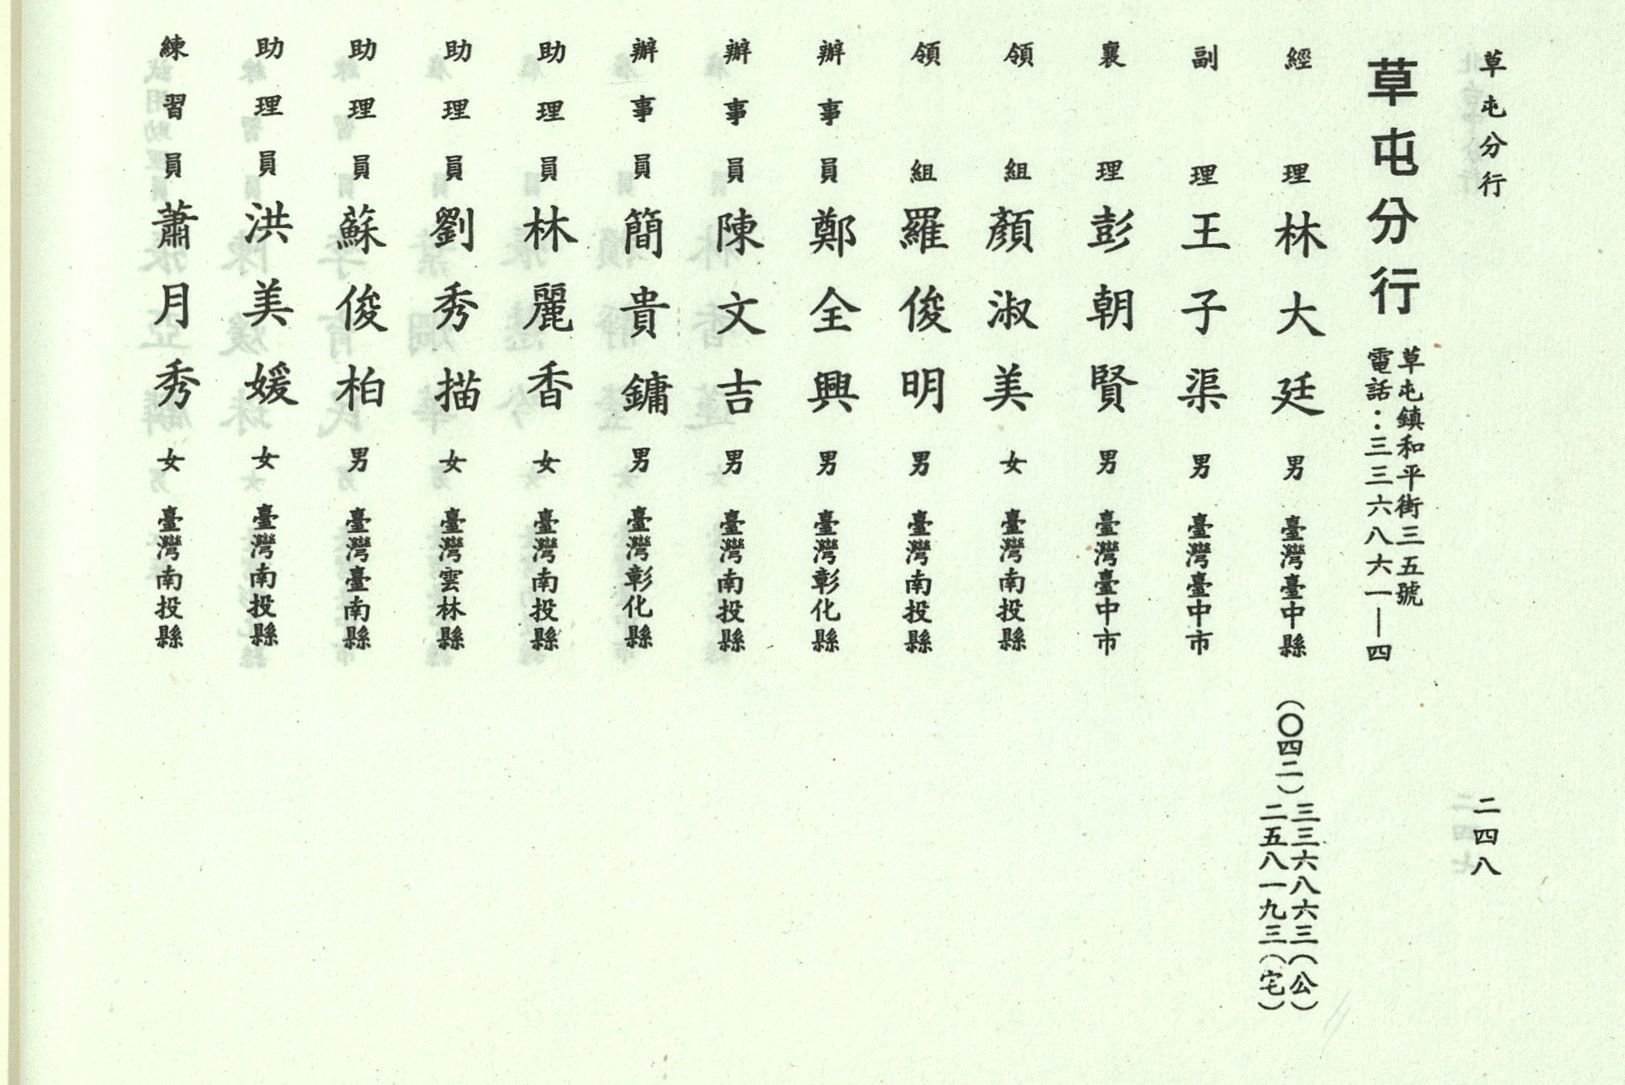 草屯分行
二四八
草屯分行
草屯鎮和平街三五號
電話：三三六八六一—四
經理 林大廷 男 臺灣臺中縣 (〇四二) 三三六八六三(公)
二五八一九三(宅)
副理 王子渠 男 臺灣臺中市
襄理 彭朝賢 男 臺灣臺中市
領組 顏淑美 女 臺灣南投縣
領組 羅俊明 男 臺灣南投縣
辦事員 鄭全興 男 臺灣彰化縣
辦事員 陳文吉 男 臺灣南投縣
辦事員 簡貴鏞 男 臺灣彰化縣
助理員 林麗香 女 臺灣南投縣
助理員 劉秀描 女 臺灣雲林縣
助理員 蘇俊柏 男 臺灣臺南縣
助理員 洪美媛 女 臺灣南投縣
練習員 蕭月秀 女 臺灣南投縣